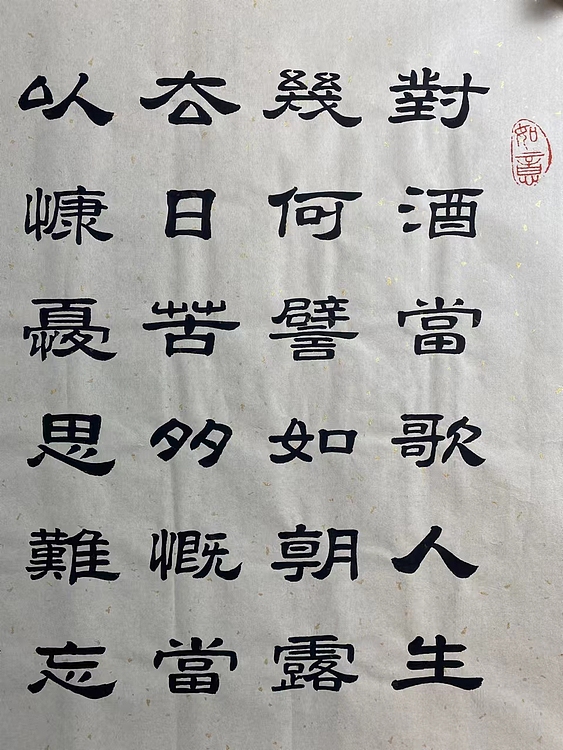 如意
對酒當歌人生
幾何譬如朝露
去日苦多慨當
以慷憂思難忘